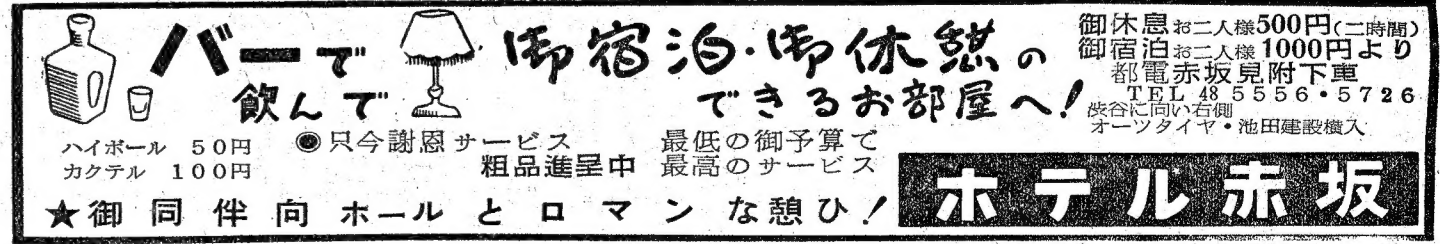 バーで
飲んで
御宿泊・御休憩の
できるお部屋へ!
御休息お二人様500円(二時間)
御宿泊お二人様1000円より
都電赤坂見附下車
TEL 48 5556・5726
渋谷に向い右側
オーツタイヤ・池田建設横入
ハイボール 50円
カクテル 100円
◉只今謝恩サービス
粗品進呈中
最低の御予算で
最高のサービス
★御同伴向ホールとロマンな憩ひ!
ホテル赤坂